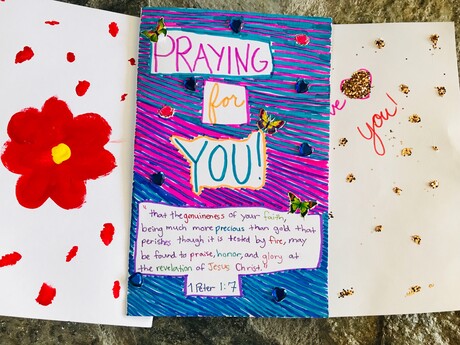 PRAYING
for
YOU!
"that the genuineness of your faith,
being much more precious than gold that
perishes though it is tested by fire, may
be found to praise, honor, and glory at
the revelation of Jesus Christ."
1 Peter 1:7
you!